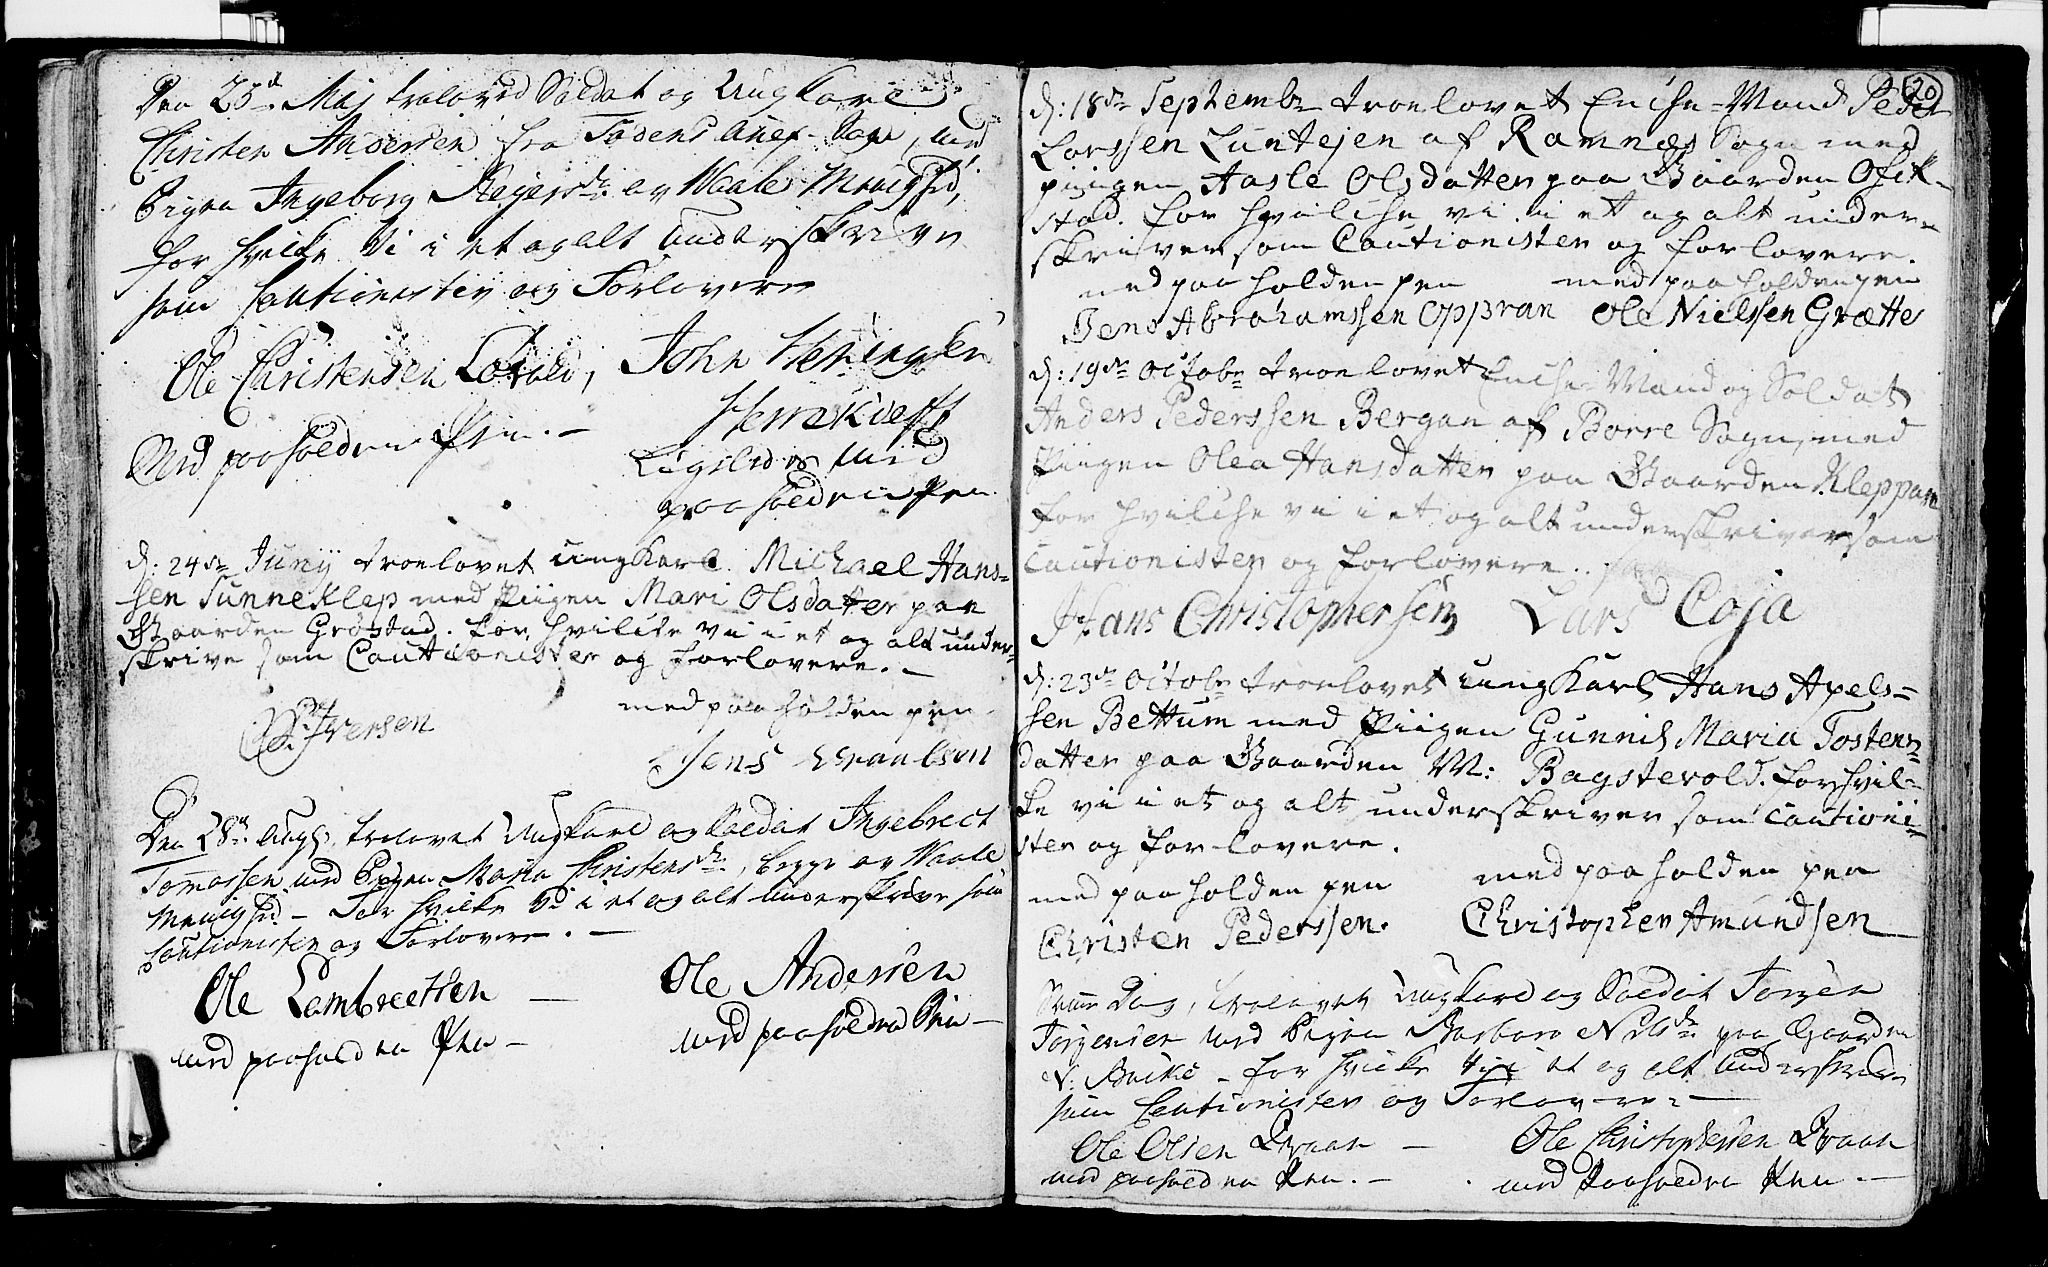 Den 25d. Maj troloved Soldat og Ungkarl
Christen Andersen fra Sogn, med
Pigen Ingeborg Rejersdr. av Waale Menighed,
for hvilke Vi i et og alt underskriver
som Cautionister og Forlovere
Ole Christensen John Heningsen
Med paaholden Pen. – Herreskieff
Ligeledes med
paaholden Pen.
d: 24de Junij troelovet ungkarl Michael Hans-
sen Sunneklep med Piigen Mari Olsdatter paa
Gaarden Grøstad. for hvilcke vi i et og alt under-
skrive som Cautionister og forlovere. –
Iversen med paa holden pen.
Jens
Den 28de Augs. trolovet Ungkarl og Soldat Ingebrect
Tomassen med Pigen Maria Christensdr., begge av Waale
Menighed – For hvilke Vi i et og alt underskriver som
Cautionister og Forlovere. –
Ole Lambrectsen – Ole Andersen
med paaholden Pen – med paaholden Pen –
20
d: 18de Septembr troelovet Encke-Mand Peder
Larssen Luntejen af Ramnæs Sogn med
piigen Aasle Olsdatter paa Gaarden
stad. for hvilcke vi i et og alt under-
skriver som Cautionister og forlovere.
med paa holden pen med paa holden pen
Jens Abrahamssen Oppran Ole Nielssen Grætte
d: 19de Octobr troelovet Encke-Mand og Soldat
Anders Pederssen Bergan af Borre Sogn, med
Piigen Olea Hansdatter paa Gaarden Kleppan
for hvilcke vi i et og alt underskriver som
Cautionister og forlovere.
Hans Christophersen Lars Coja
d: 23de Octobr troelovet ungkarl Hans Apels-
sen Bettum med Piigen Gunnild Maria Tostens-
datter paa Gaarden M: Bagstevold. for hvil-
ke vi i et og alt underskriver som Cautioni-
ster og forlovere.
med paa holden pen med paa holden pen
Christen Pederssen. Christopher Amundsen
Samme Dag, trolovet Ungkarl og Soldat Jørgen
Jørgensen med Pigen Barbara Nilsdr. paa Gaarden
N: – for hvilke Vi i et og alt underskriver
som Cautionister og Forlovere –
Ole Olsen Draan – Ole Christophersen Draan
med paaholden Pen. – med Paaholden Pen. –